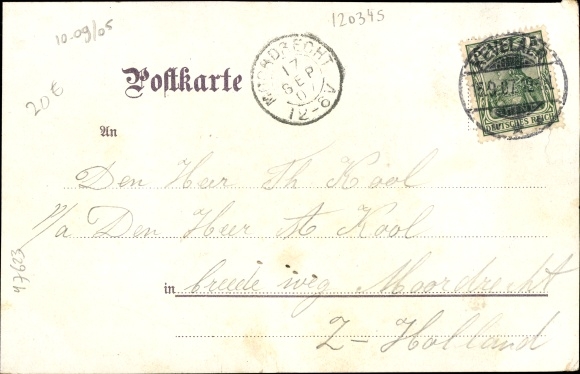 120345
10-09/05
20€
Postkarte
MOORDRECHT
17
SEP
07
12-6V
KEVELAER
DEUTSCHES REICH
An
Den Heer Th Kool
p/a Den Heer A Kool
in breede weg Moordrecht
Z-Holland
47623